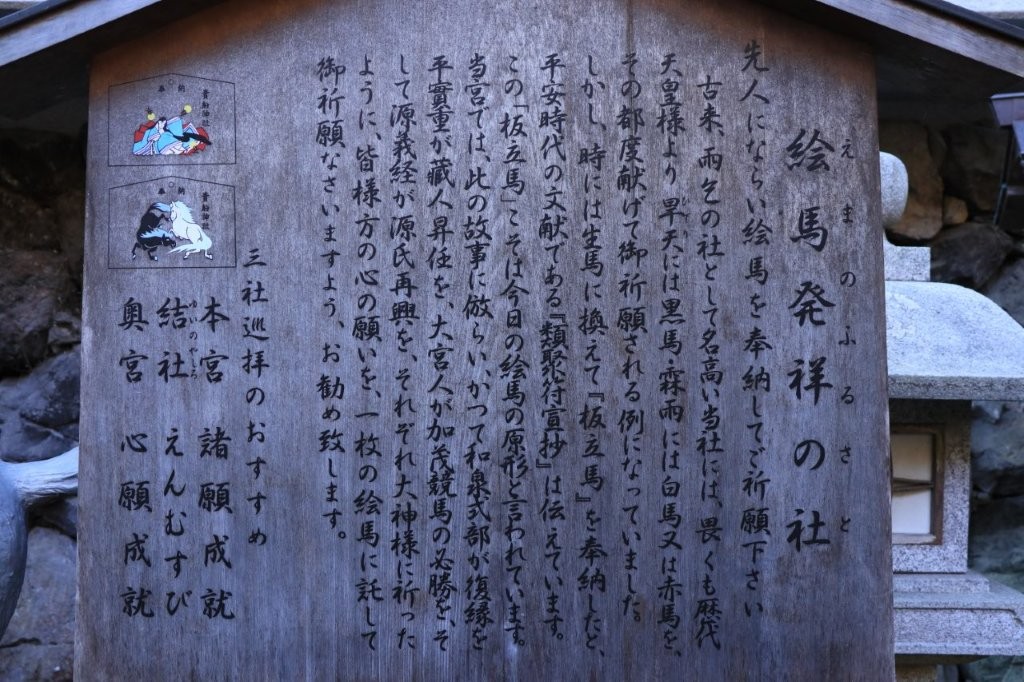 絵馬発祥の社
えまのふるさと
先人にならい絵馬を奉納してご祈願下さい
古来、雨乞の社として名高い当社には、畏くも歴代
天皇様より旱天には黒馬・霖雨には白馬又は赤馬を、
その都度献げて御祈願される例になっていました。
しかし、時には生馬に換えて『板立馬』を奉納したと、
平安時代の文献である『類聚符宣抄』は伝えています。
この「板立馬」こそは今日の絵馬の原形と言われています。
当宮では、此の故事に倣らい、かつて和泉式部が復縁を
平實重が蔵人昇任を、大宮人が加茂競馬の必勝を、そ
して源義経が源氏再興を、それぞれ大神様に祈った
ように、皆様方の心の願いを、一枚の絵馬に託して
御祈願なさいますよう、お勧め致します。
三社巡拝のおすすめ
本宮 諸願成就
結社 えんむすび
ゆいのやしろ
奥宮 心願成就
奉納
貴船神社
奉納
貴船神社